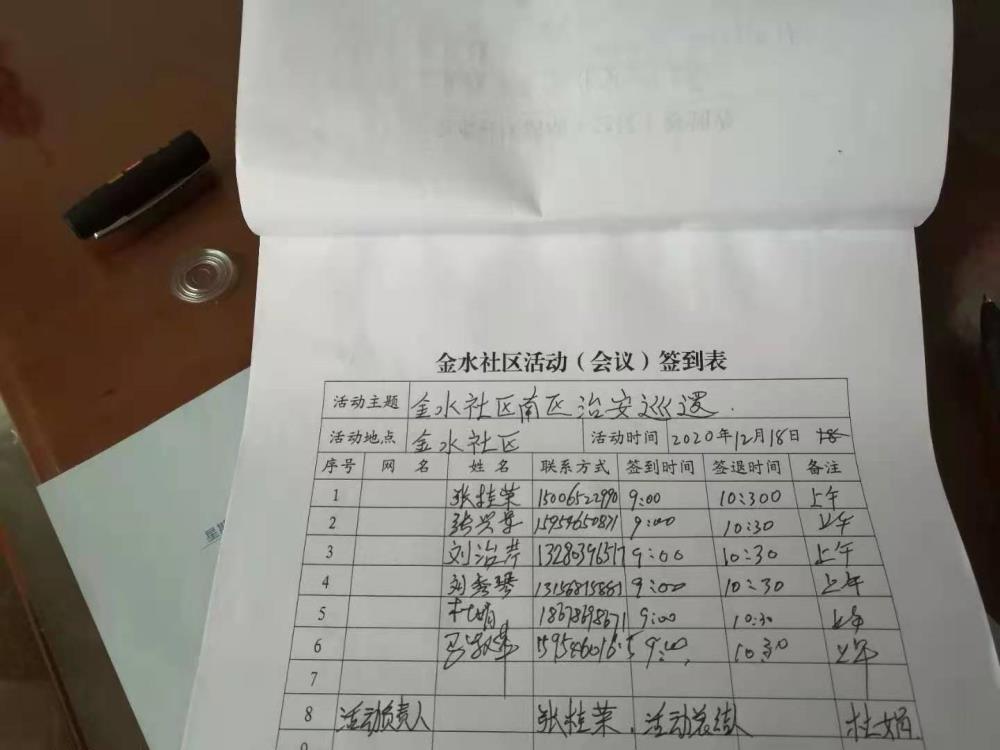 金水社区活动（会议）签到表
活动主题 金水社区南区治安巡逻.
活动地点 金水社区 活动时间 2020年12月18日
序号 网 名 姓 名 联系方式 签到时间 签退时间 备注
1 张桂荣 15006522990 9:00 10:300 上午
2 张兴华 15954650871 9:00 10:30 上午
3 刘治芹 13280396517 9:00 10:30 上午
4 刘秀琴 13156815881 9:00 10:30 上午
5 杜娟 18678698671 9:00 10:30 上午
6 9:00 10:30 上午
7
8 活动负责人 张桂荣. 活动总结人 杜娟
星期